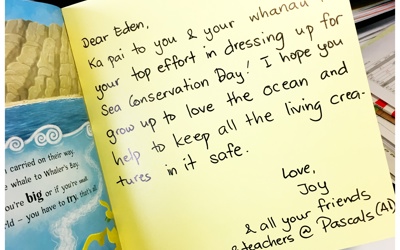 Dear Eden,
Ka pai to you & your whanau
your top effort in dressing up for
Sea Conservation Day! I hope you
grow up to love the ocean and
help to keep all the living crea-
tures in it safe.
Love,
Joy
& all your friends
& teachers @ Pascals (AD)
carried on their way,
whale to Whaler's Bay.
you're big or if you're small
– you have to try, that's all